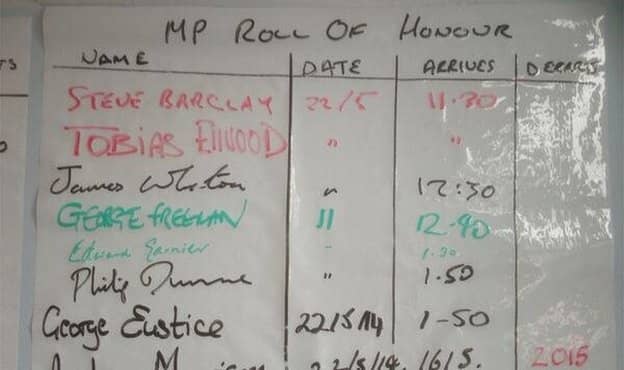 MP ROLL OF HONOUR
NAME DATE ARRIVES DEPARTS
STEVE BARCLAY 22/5 11.30
TOBIAS Ellwood " "
James Wharton " 12:30
GEORGE FREEMAN 11 12.40
Edward Garnier - 1.30
Philip Dunne " 1.50
George Eustice 22/5/14 1-50
22/5/14. 16/5. 2015